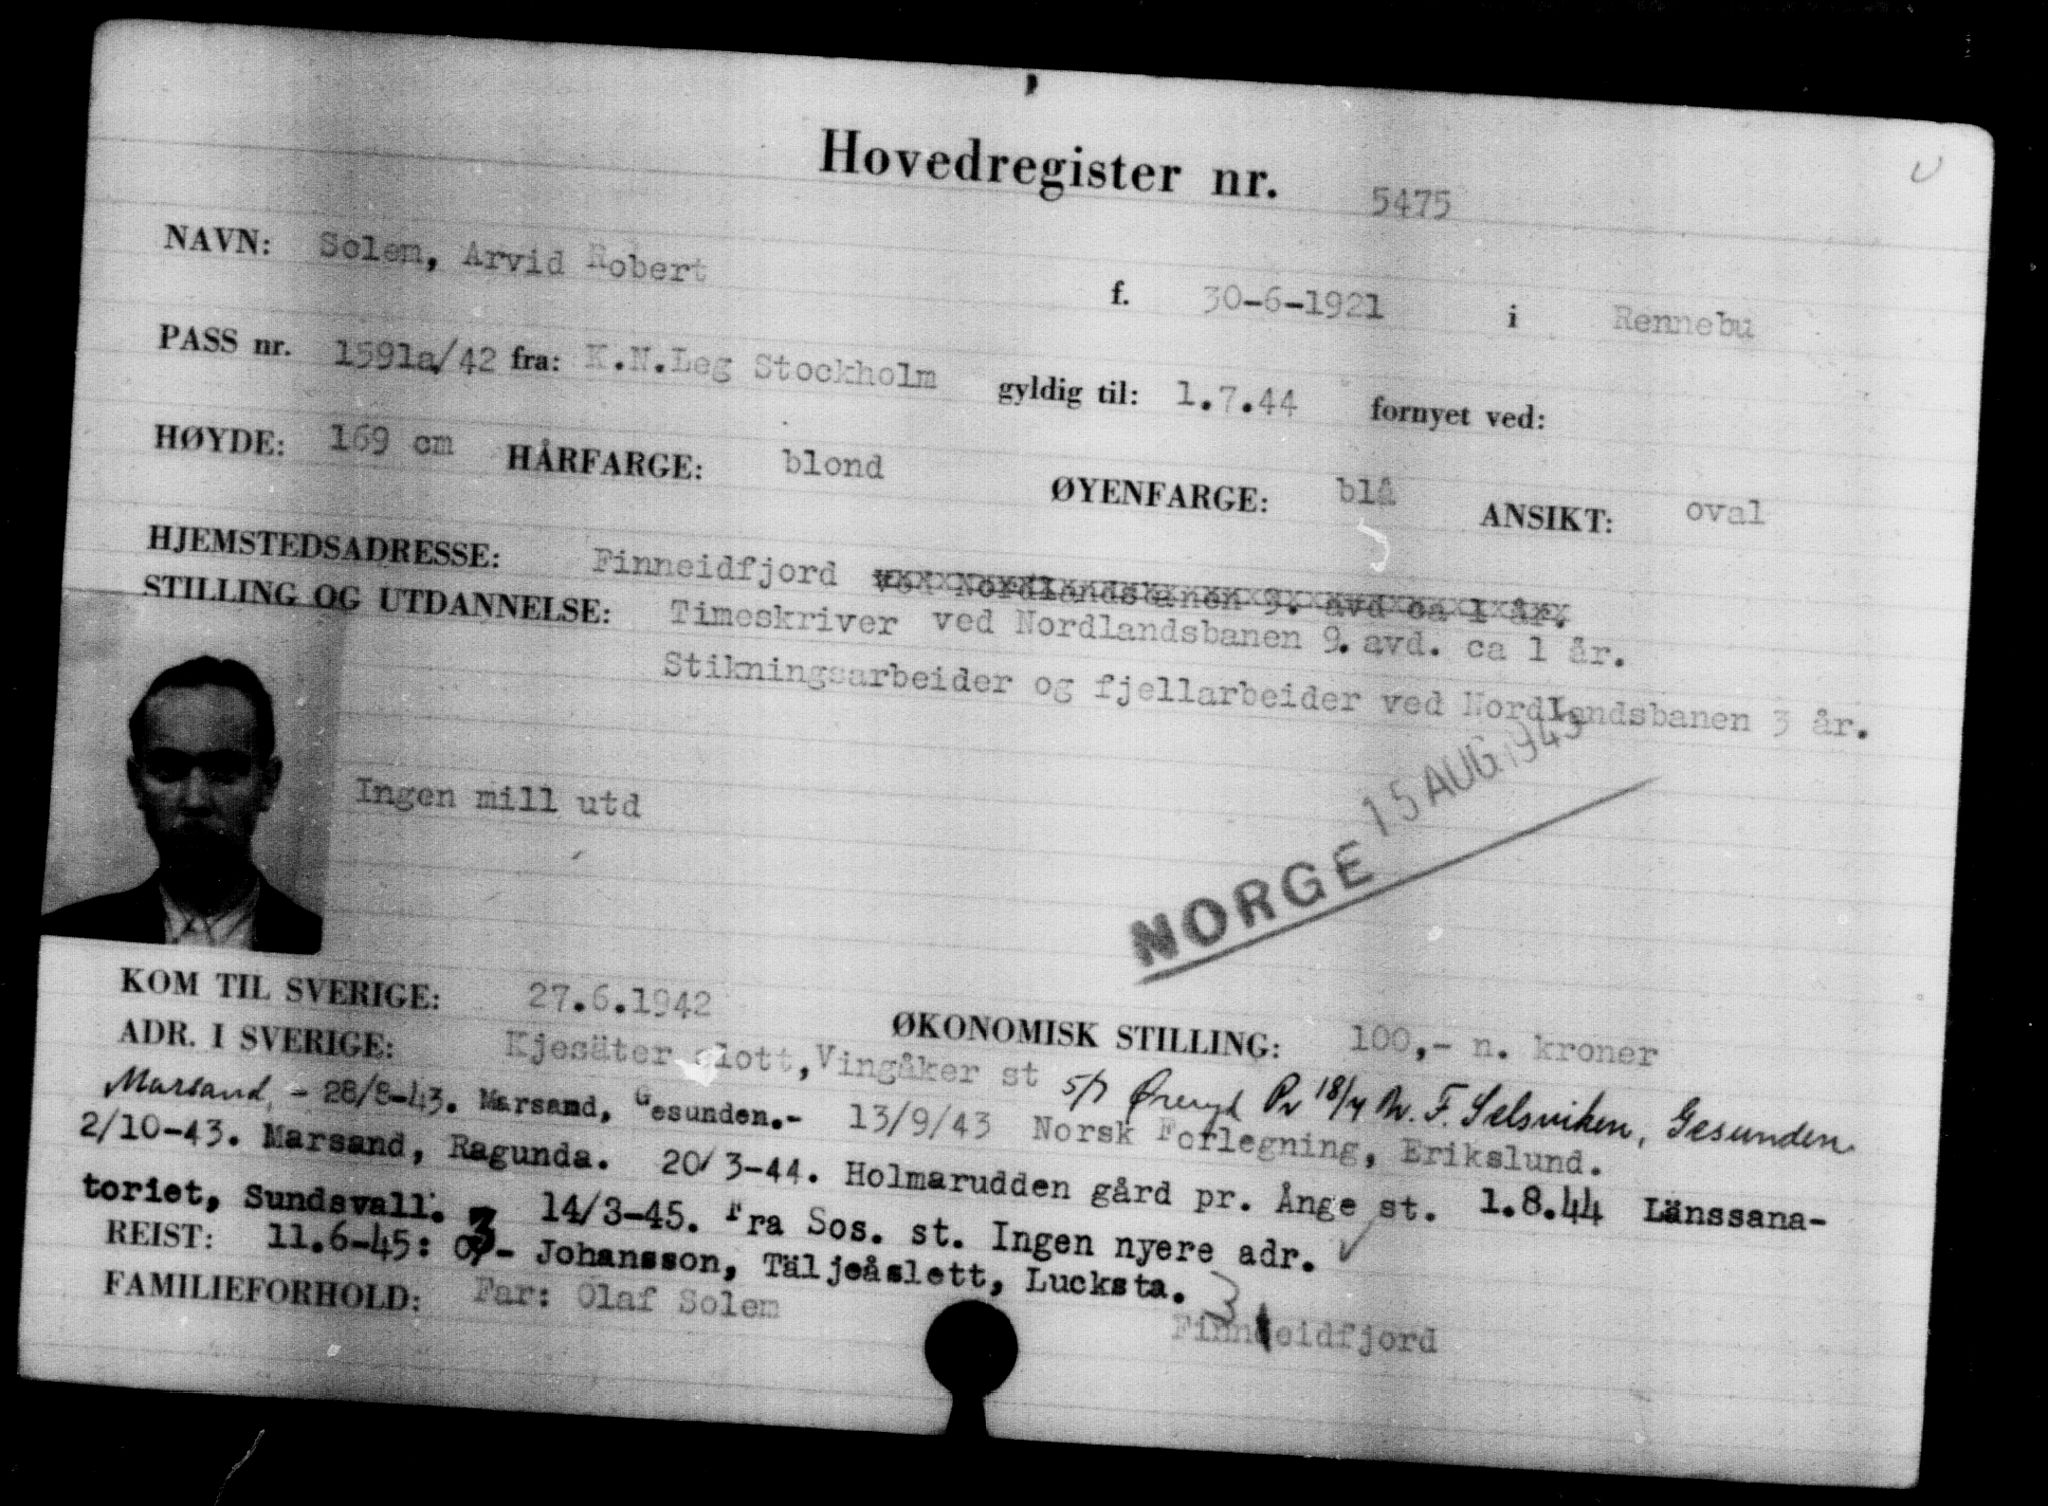 Hovedregister nr. 5475
NAVN: Solem, Arvid Robert f. 30-6-1921 i Rennebu
PASS nr. 1591a/42 fra: K.N.Leg Stockholm gyldig til: 1.7.44 fornyet ved:
HØYDE: 169 cm HÅRFARGE: blond ØYENFARGE: blå ANSIKT: oval
HJEMSTEDSADRESSE: Finneidfjord ved Nordlandsbanen 9. avd ca 1 år.
STILLING OG UTDANNELSE: Timeskriver ved Nordlandsbanen 9. avd. ca 1 år.
Stikningsarbeider og fjellarbeider ved Nordlandsbanen 3 år.
Ingen mill utd
NORGE 15 AUG 1945
KOM TIL SVERIGE: 27.6.1942 ØKONOMISK STILLING: 100,- n. kroner
ADR. I SVERIGE: Kjesäter slott, Vingåker st 5/7 Pr 18/4 F. Selsviken, Gesunden
Marsand, - 28/8-43. Marsand, Gesunden.- 13/9/43 Norsk Forlegning, Erikslund.
2/10-43. Marsand, Ragunda. 20/3-44. Holmarudden gård pr. Ånge st. 1.8.44 Länssana-
toriet, Sundsvall. 14/3-45. Fra Sos. st. Ingen nyere adr.
REIST: 11.6-45: Johansson, Täljeåslett, Lucksta.
FAMILIEFORHOLD: Far: Olaf Solem Finneidfjord